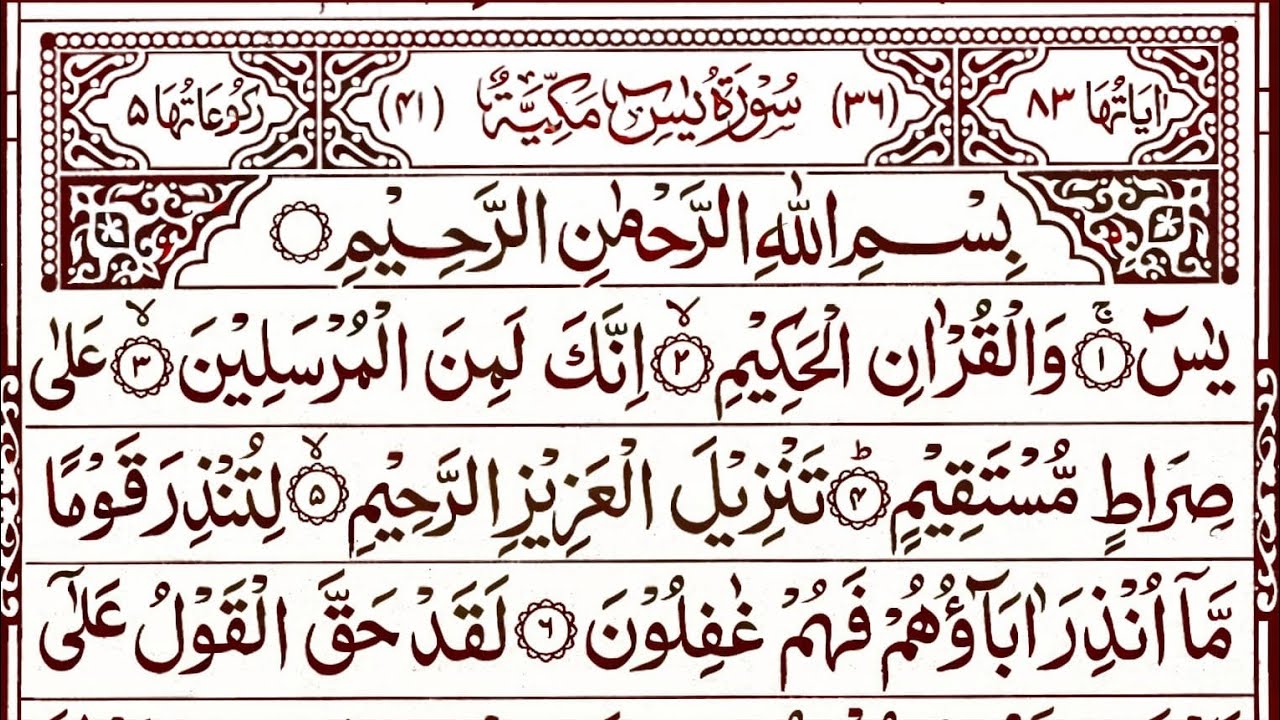 اٰيَاتُهَا ٨٣ (٣٦) سُوْرَةُ يٰسٓ مَكِّيَّةٌ (٤١) رُكُوْعَاتُهَا ٥
بِسْمِ اللّٰهِ الرَّحْمٰنِ الرَّحِيْمِ
يٰسٓ ۚ﴿١﴾ وَالْقُرْاٰنِ الْحَكِيْمِ ۙ﴿٢﴾ اِنَّكَ لَمِنَ الْمُرْسَلِيْنَ ۙ﴿٣﴾ عَلٰى
صِرَاطٍ مُّسْتَقِيْمٍ ؕ﴿۴﴾ تَنْزِيْلَ الْعَزِيْزِ الرَّحِيْمِ ۙ﴿۵﴾ لِتُنْذِرَ قَوْمًا
مَّآ اُنْذِرَ اٰبَآؤُهُمْ فَهُمْ غٰفِلُوْنَ ﴿۶﴾ لَقَدْ حَقَّ الْقَوْلُ عَلٰٓى